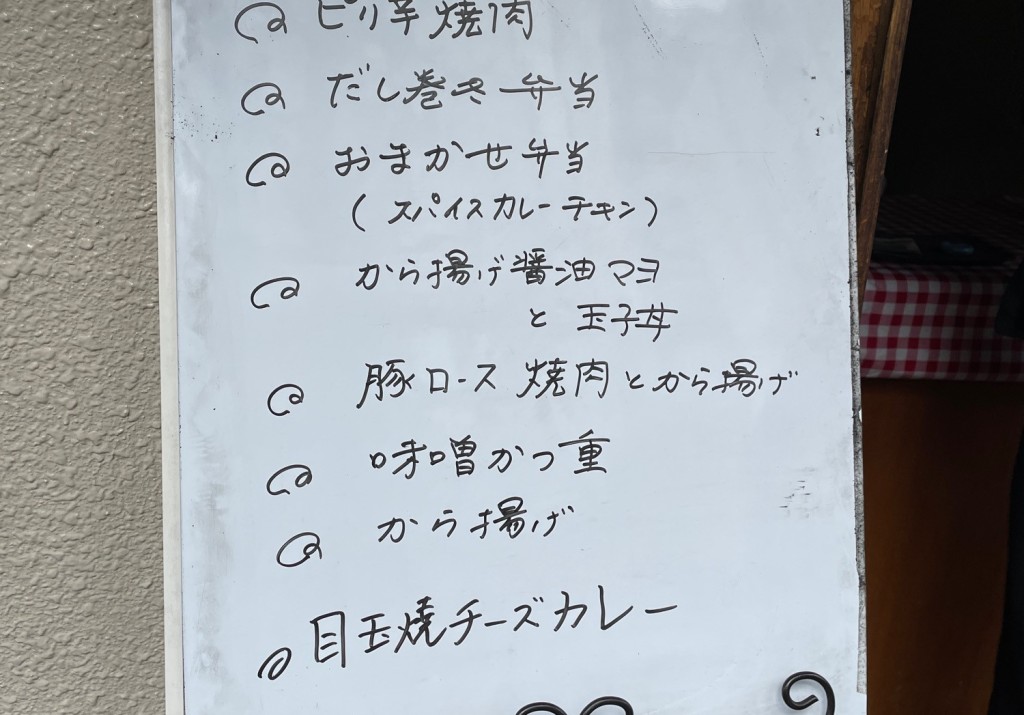 ピリ辛焼肉
だし巻き弁当
おまかせ弁当
(スパイスカレーチキン)
から揚げ醤油マヨ
と 玉子丼
豚ロース 焼肉とから揚げ
味噌かつ重
から揚げ
目玉焼チーズカレー